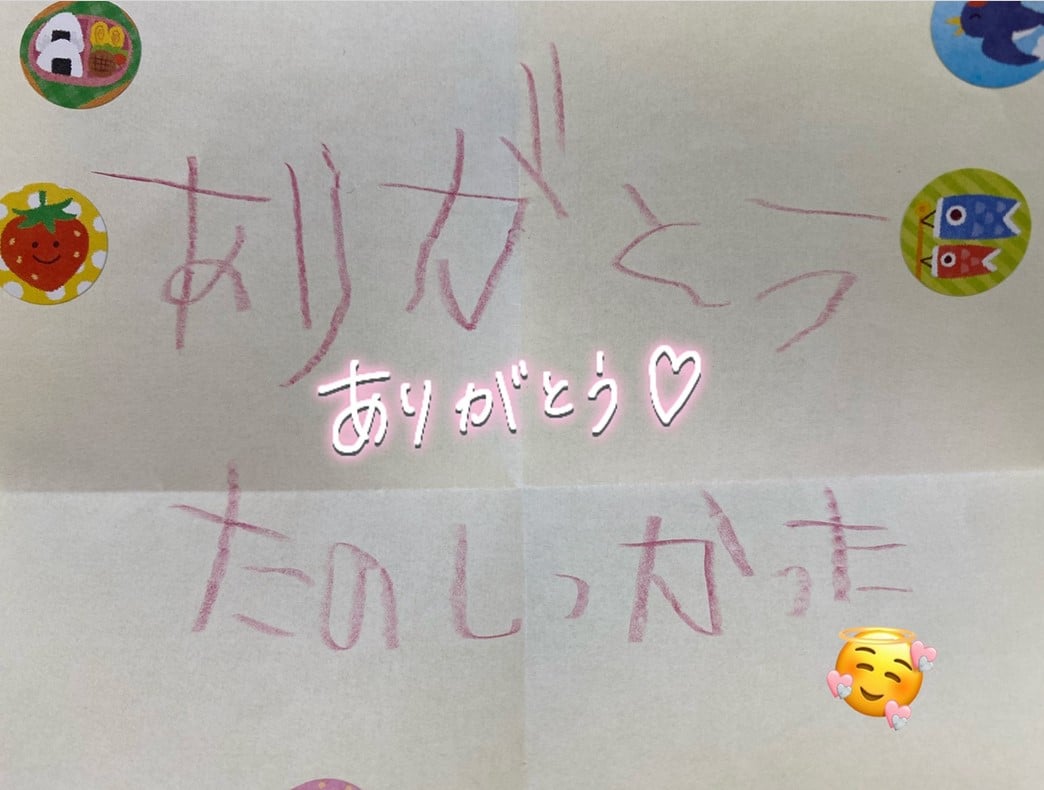 ありがとう
ありがとう♡
たのしっかった